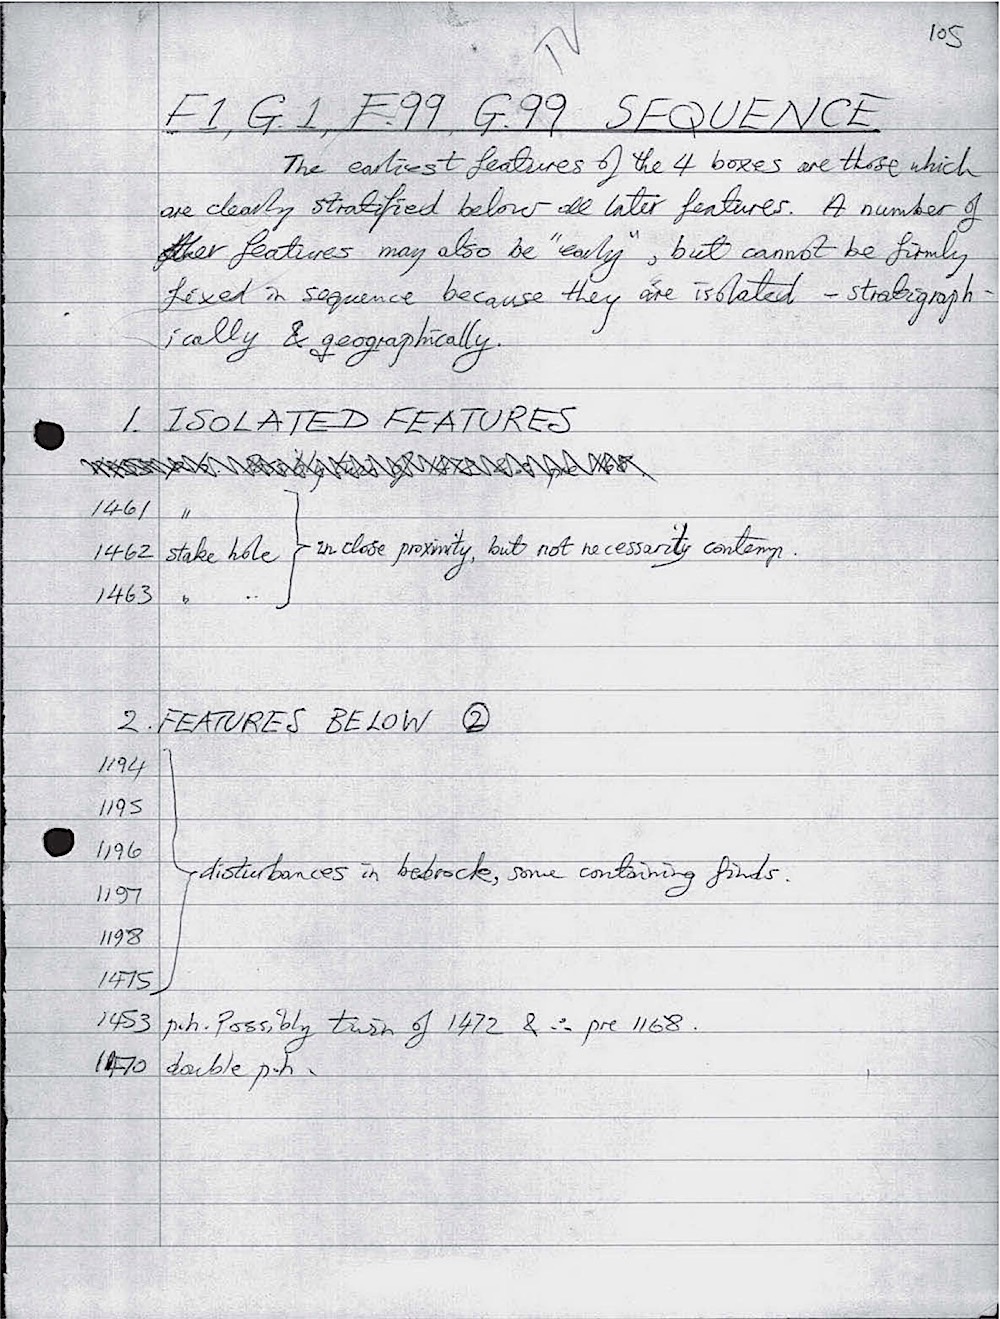 105
IV
F1, G.1, F.99, G.99 SEQUENCE
The earliest features of the 4 boxes are those which
are clearly stratified below all later features. A number of
other features may also be "early", but cannot be firmly
fixed in sequence because they are isolated - stratigraph-
ically & geographically.
1. ISOLATED FEATURES
1461 "
1462 stake hole } in close proximity, but not necessarily contemp.
1463 " "
2. FEATURES BELOW ②
1194
1195
1196
disturbances in bedrock, some containing finds.
1197
1198
1475
1453 p.h. Possibly twin of 1472 & ∴ pre 1168.
1470 double p.h.